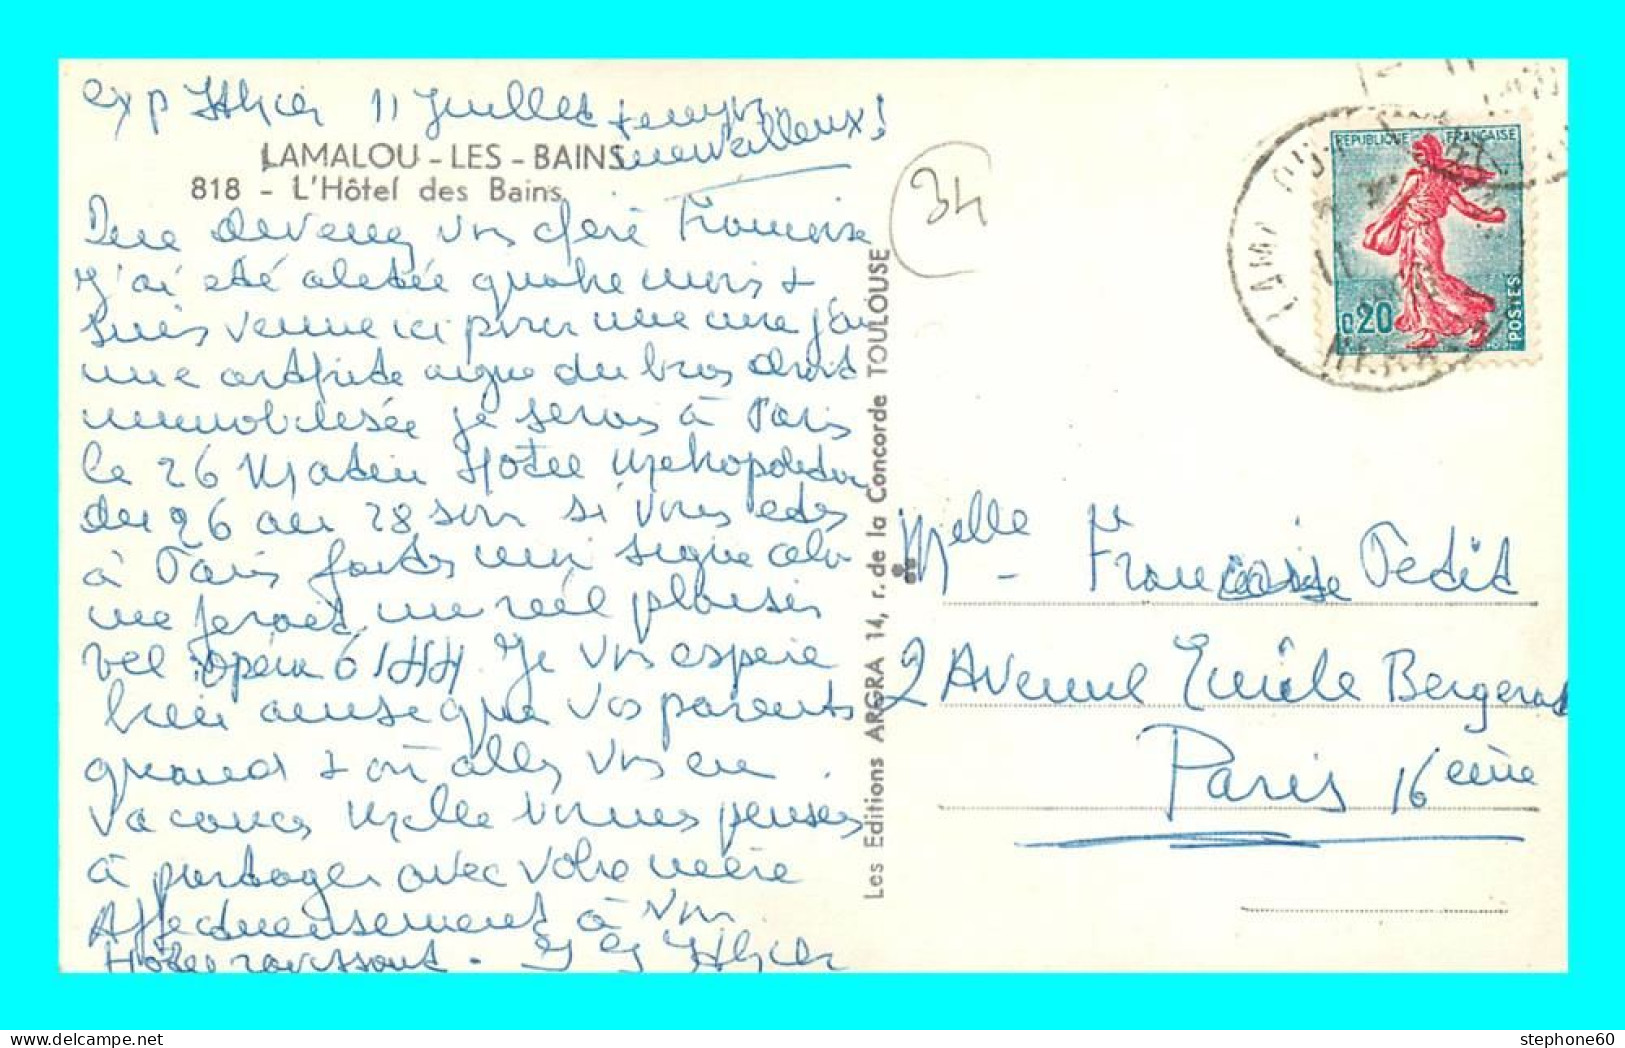 exp 11 Juillet temps
merveilleux!
LAMALOU - LES - BAINS
818 - L'Hôtel des Bains
Que devenez vous chère Francoise
J'ai été alitée quatre mois +
suis venue ici pour une cure j'ai
une arthrite aigue du bras droit
immobilisée je serai à Paris
le 26 Matin Hotel Metropolitain
du 26 au 28 soir si vous etes
à Paris faites moi signe cela
me ferait un réel plaisir
tel opéra 6144 Je vous espere
bien ainsi que vos parents
quand + où allez vous en
vacances Mille bonnes pensées
à partager avec votre mère
Affectueusement à vous
Hotel ravissant -
Les Editions ARGRA 14, r. de la Concorde TOULOUSE
34
REPUBLIQUE FRANÇAISE
0,20
POSTES
Melle Francoise Petit
2 Avenue Emile Bergerat
Paris 16 eme
stephone60